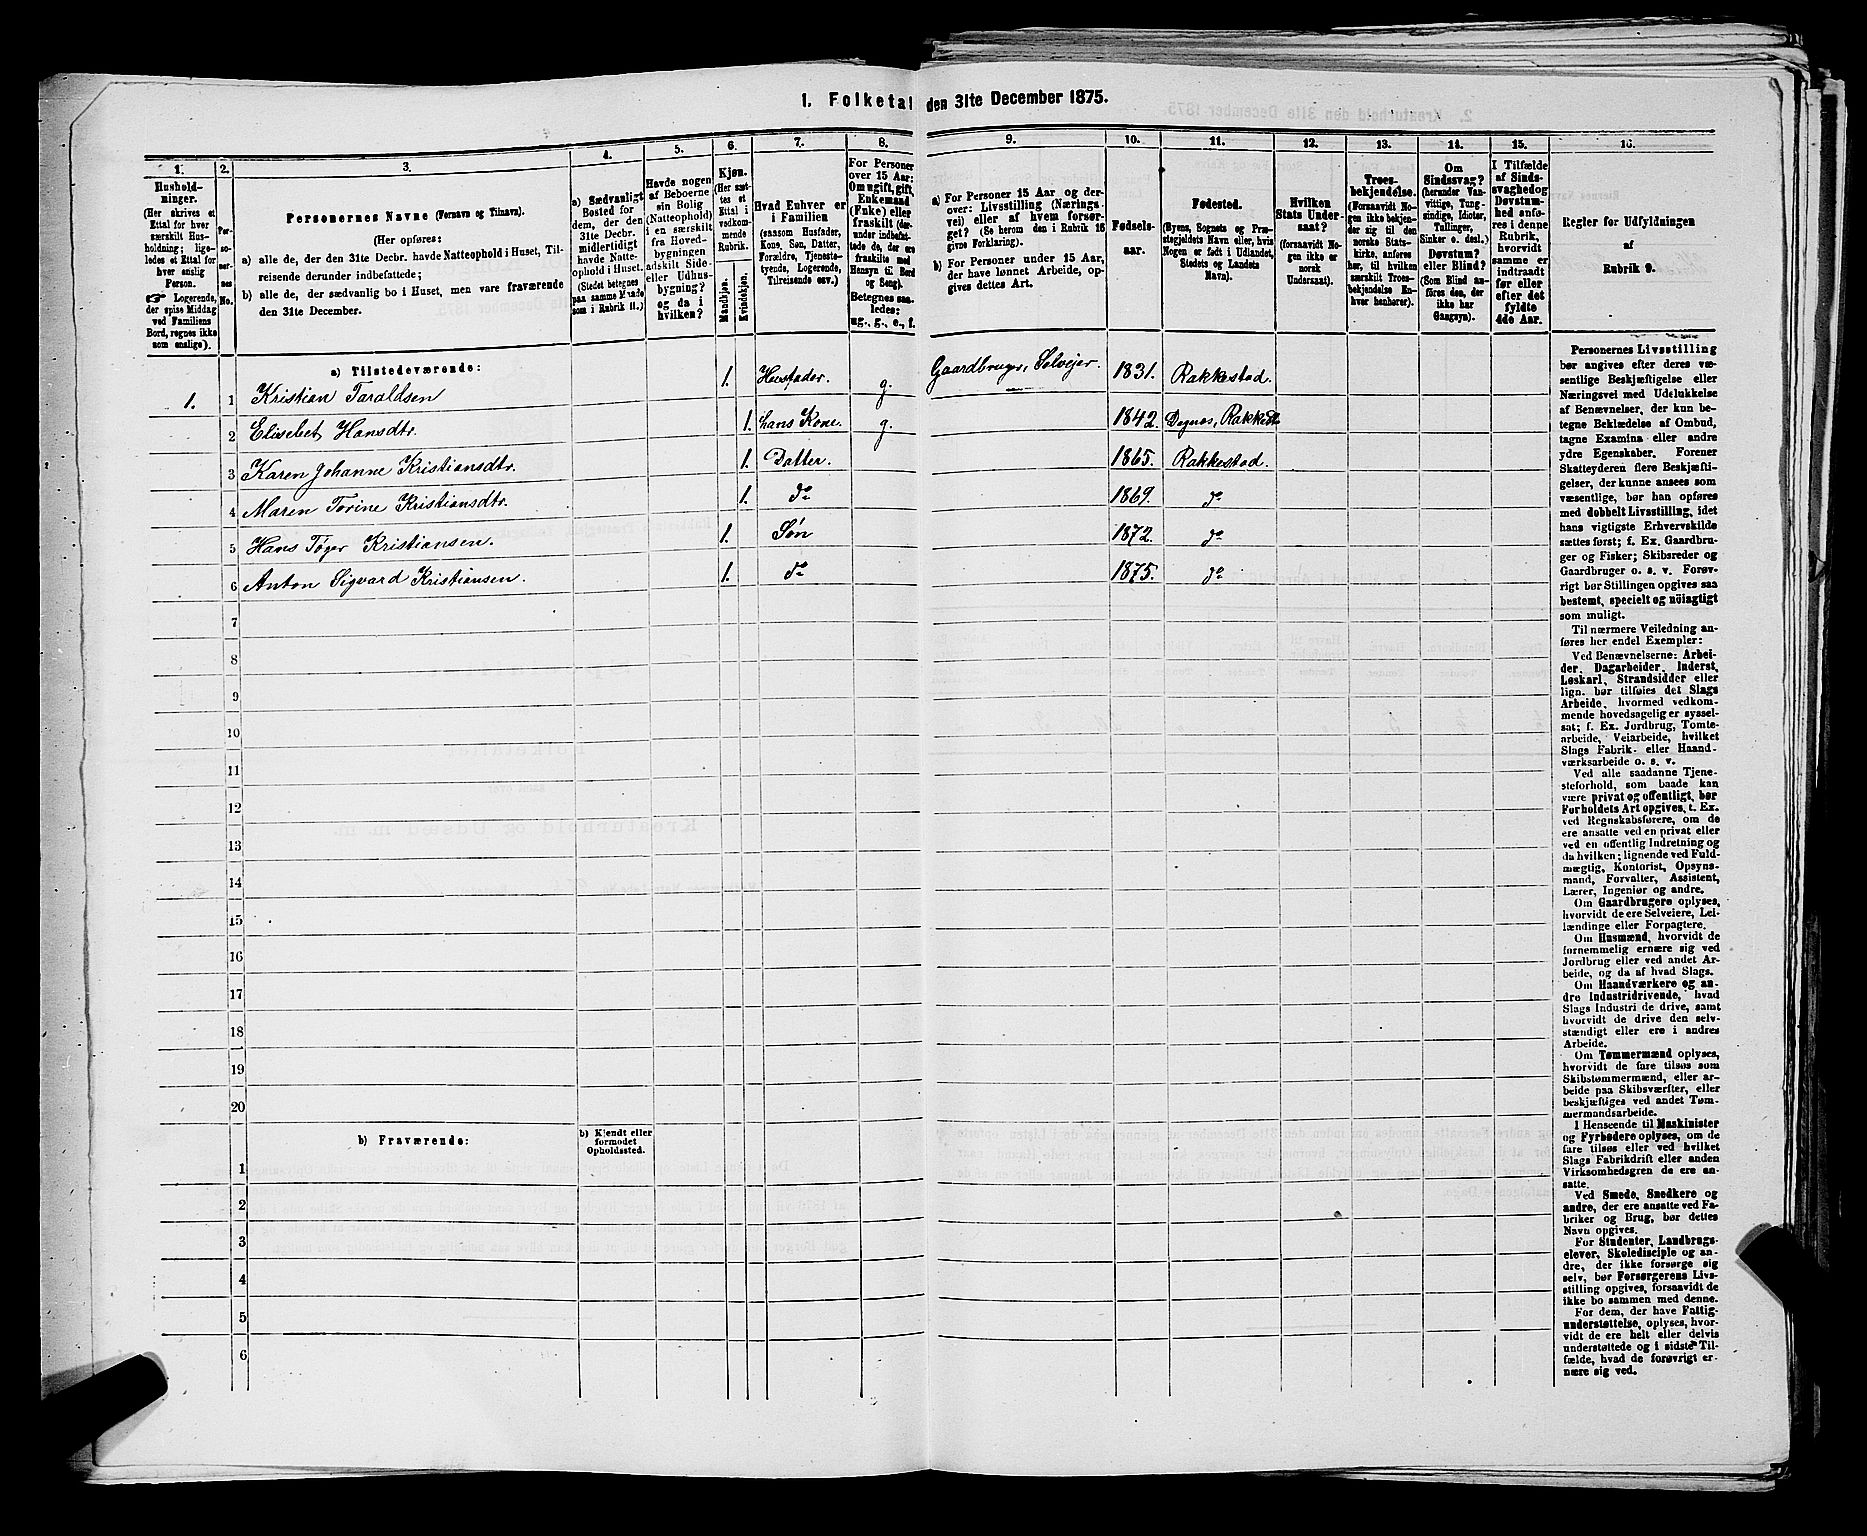 1. Folketal den 31te December 1875.
1. 2. 3. 4. 5. 6. 7. 8. 9. 10. 11. 12. 13. 14. 15. 16.
Hushold-
ninger.
(Her skrives et
Ettal for hver
særskilt Hus-
holdning; lige-
ledes et Ettal for
hver enslig
Person.
☞ Logerende,
der spise Middag
ved Familiens
Bord, regnes ikke
som enslige).
Per-
so-
ner-
nes
No.
Personernes Navne (Fornavn og Tilnavn).
(Her opføres:
a) alle de, der den 31te Decbr. havde Natteophold i Huset, Til-
reisende derunder indbefattede;
b) alle de, der sædvanlig bo i Huset, men vare fraværende
den 31te December.
a) Sædvanligt
Bosted for
dem, der den
31te Decbr.
midlertidigt
havde Natte-
ophold i Huset.
(Stedet betegnes
paa samme Maade
som i Rubrik 11.)
Havde nogen
af Beboerne
sin Bolig
(Natteophold)
i en særskilt
fra Hoved-
bygningen
adskilt Side-
eller Udhus-
bygning?
og da i
hvilken?
Kjøn.
(Her sæt-
tes et
Ettal i
vedkom-
mende
Rubrik.
Mandkjøn.
Kvindekjøn.
Hvad Enhver er
i Familien
(saasom Husfader,
Kone, Søn, Datter,
Forældre, Tjeneste-
tyende, Logerende,
Tilreisende osv.)
For Personer
over 15 Aar:
Om ugift, gift,
Enkemand
(Enke) eller
fraskilt (der-
under indbefat-
tede de, der ere
fraskilte med
Hensyn til Bord
og Seng).
Betegnes saa-
ledes:
ug., g., e., f.
a) For Personer 15 Aar og der-
over: Livsstilling (Nærings-
vei) eller af hvem forsør-
get? (Se herom den i Rubrik 16
givne Forklaring).
b) For Personer under 15 Aar,
der have lønnet Arbeide, op-
gives dettes Art.
Fødsels-
aar.
Fødested.
(Byens, Sognets og Præ-
stegjeldets Navn eller, hvis
Nogen er født i Udlandet,
Stedets og Landets
Navn).
Hvilken
Stats Under-
saat?
(forsaavidt No-
gen ikke er
norsk
Undersaat).
Troes-
bekjendelse.
(Forsaavidt No-
gen ikke bekjen-
der sig til den
norske Stats-
kirke, anføres
her, til hvilken
særskilt Troes-
bekjendelse En-
hver henhører).
Om
Sindssvag?
(herunder Van-
vittige, Tung-
sindige, Idioter,
Tullinger,
Sinker o. desl.)
Døvstum?
eller Blind?
(Som Blind an-
føres den, der
ikke har
Gangsyn).
I Tilfælde
af Sinds-
svaghed og
Døvstum-
hed anfø-
res i denne
Rubrik,
hvorvidt
samme er
indtraadt
før eller
efter det
fyldte
4de Aar.
Regler for Udfyldningen
af
Rubrik 9.
a) Tilstedeværende:
1. 1 Kristian Taraldsen 1. Husfader. g. Gaardbruger, Selveier. 1831. Rakkestad.
2 Elisebet Hansdtr. 1. hans Kone. g. 1842. Degnes, Rakkest
3 Karen Johanne Kristiansdtr. 1. Datter. 1865. Rakkestad.
4 Maren Torine Kristiansdtr. 1. do 1869. do
5 Hans Tøger Kristiansen. 1. Søn 1872. do
6 Anton Sigvard Kristiansen. 1. do 1875. do
7
8
9
10
11
12
13
14
15
16
17
18
19
20
b) Fraværende:
b) Kjendt eller
formodet
Opholdssted.
1
2
3
4
5
6
Personernes Livsstilling
bør angives efter deres væ-
sentlige Beskjæftigelse eller
Næringsvei med Udelukkelse
af Benævnelser, der kun be-
tegne Beklædelse af Ombud,
tagne Examina eller andre
ydre Egenskaber. Forener
Skatteyderen flere Beskjæfti-
gelser, der kunne ansees som
væsentlige, bør han opføres
med dobbelt Livsstilling, idet
hans vigtigste Erhvervskilde
sættes først; f. Ex. Gaardbru-
ger og Fisker; Skibsreder og
Gaardbruger o. s. v. Forøv-
rigt bør Stillingen opgives saa
bestemt, specielt og nöiagtigt
som muligt.
Til nærmere Veiledning an-
føres her endel Exempler:
Ved Benævnelserne: Arbei-
der, Dagarbeider, Inderst,
Løskarl, Strandsidder eller
lign. bør tilføies det Slags
Arbeide, hvormed vedkom-
mende hovedsagelig er syssel-
sat; f. Ex. Jordbrug, Tomte-
arbeide, Veiarbeide, hvilket
Slags Fabrik- eller Haand-
værksarbeide o. s. v.
Ved alle saadanne Tjene-
steforhold, som baade kan
være privat og offentligt, bør
Forholdets Art opgives, t. Ex.
ved Regnskabsførere, om de
ere ansatte ved en privat eller
ved en offentlig Indretning og
da hvilken; lignende ved Fuld-
mægtig, Kontorist, Opsyns-
mand, Forvalter, Assistent,
Lærer, Ingeniør og andre.
Om Gaardbrugere oplyses,
hvorvidt de ere Selveiere, Lei-
lændinge eller Forpagtere.
Om Husmænd, hvorvidt de
fornemmelig ernære sig ved
Jordbrug eller ved andet Ar-
beide, og da af hvad Slags.
Om Haandværkere og an-
dre Industridrivende, hvad
Slags Industri de drive, samt
hvorvidt de drive den selv-
stændigt eller ere i andres
Arbeide.
Om Tømmermænd oplyses,
hvorvidt de fare tilsøs som
Skibstømmermænd, eller ar-
beide paa Skibsværfter, eller
beskjæftiges ved andet Tøm-
mermandsarbeide.
I Henseende til Maskinister
og Fyrbødere oplyses, om de
fare tilsøs eller ved hvilket
Slags Fabrikdrift eller anden
Virksomhedsgren de ere an-
satte.
Ved Smede, Snedkere og
andre, der ere ansatte ved Fa-
briker og Brug, bør dettes
Navn opgives.
For Studenter, Landbrugs-
elever, Skoledisciple og an-
dre, der ikke forsørge sig
selv, bør Forsørgerens Livs-
stilling opgives, forsaavidt de
ikke bo sammen med denne.
For dem, der have Fattig-
understøttelse, oplyses, hvor-
vidt de ere helt eller delvis
understøttede og i sidste Til-
fælde, hvad de forøvrigt er-
nære sig ved.